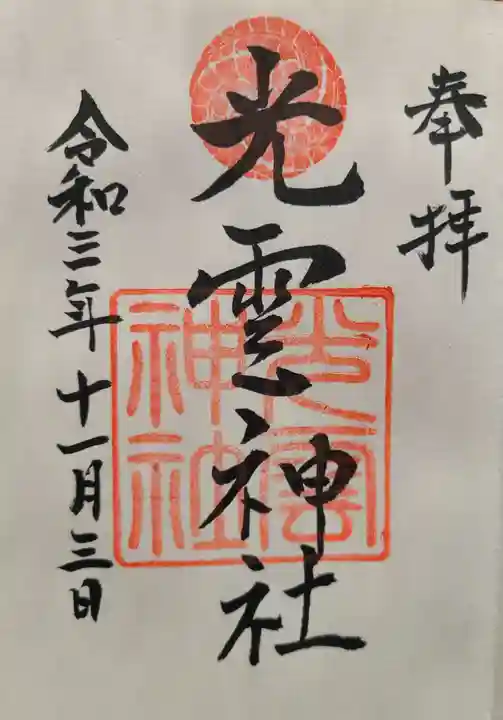 奉拝
光雲神社
令和三年十一月三日
光雲神社